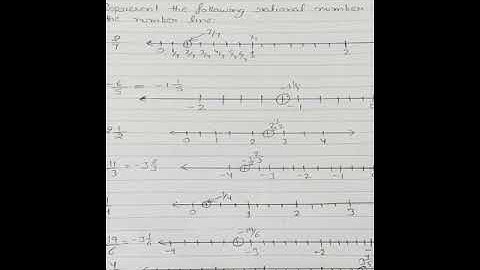 Represent the following rational number
the number line.
2/7
2/7
0 1/7 2/7 3/7 4/7 5/7 6/7 1 2
-6/5 = -1 1/5
-1 1/5
-2 -1
2 1/2
2 1/2
0 1 2 3 4
11/3 = -3 2/3
-3 2/3
-4 -3 -2 -1
1/4
0 1 2 3
19/6 = -3 1/6
-19/6
-4 -3 -2